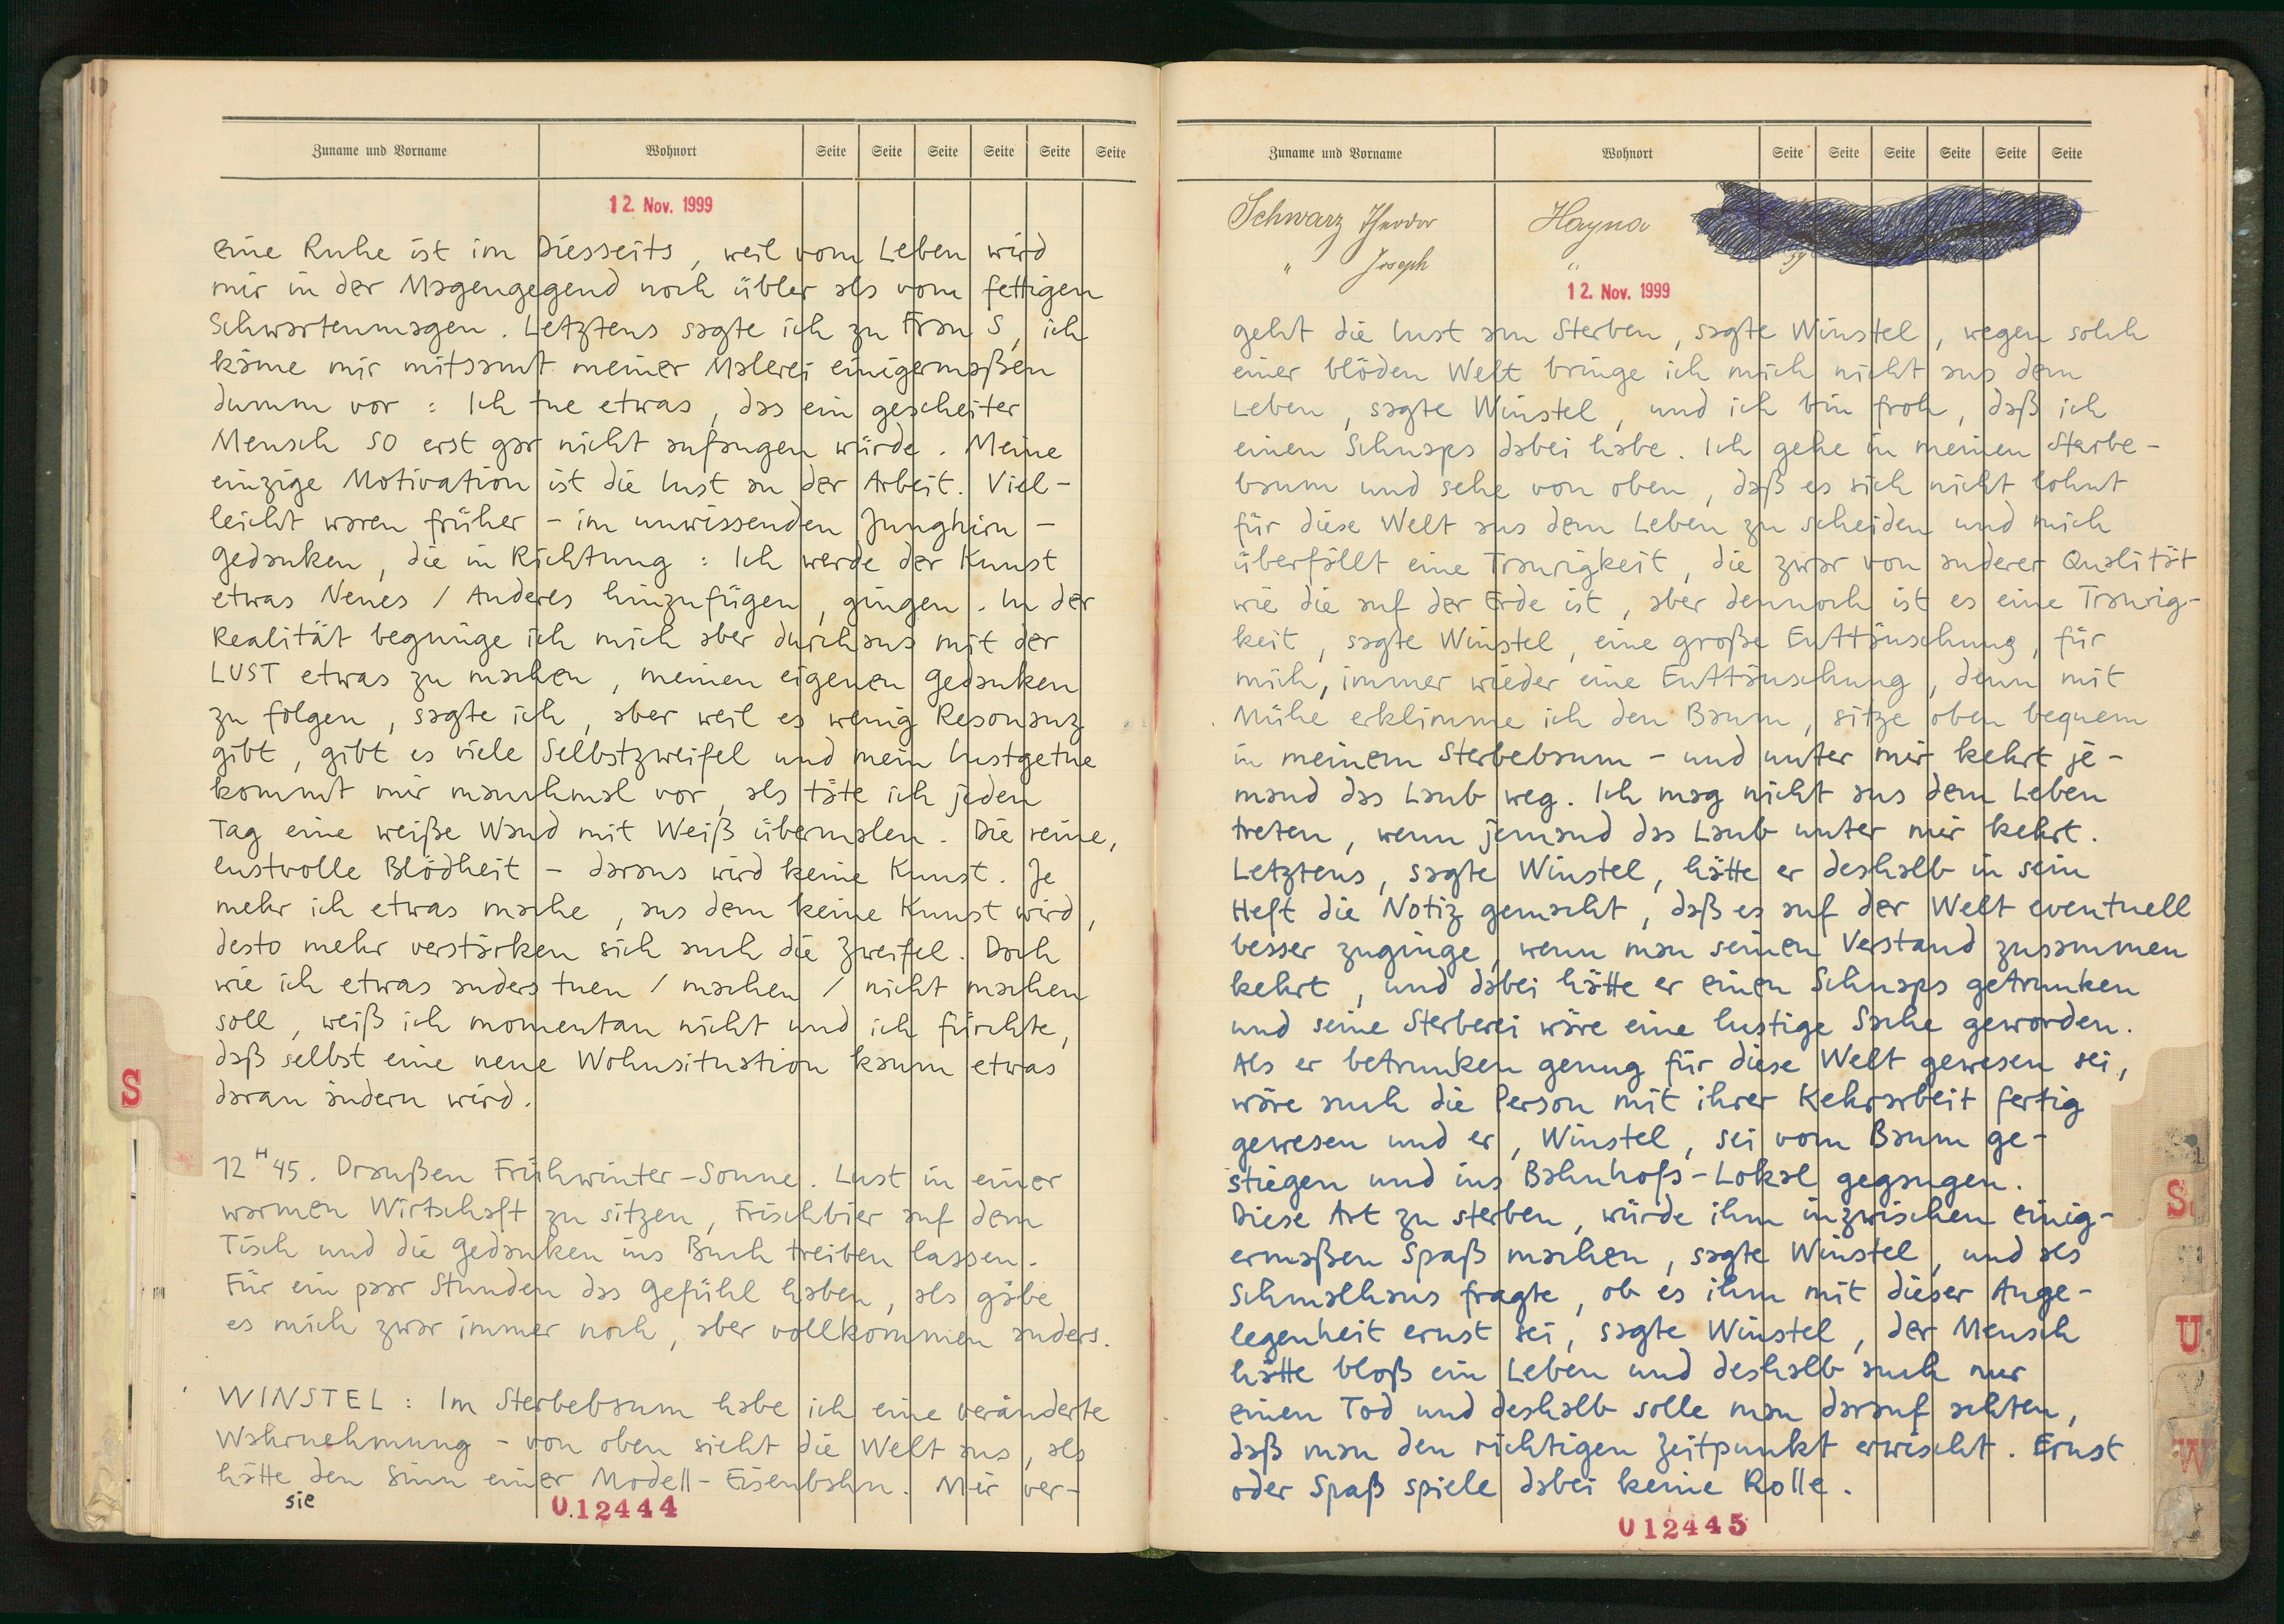 Zuname und Vorname Wohnort Seite Seite Seite Seite Seite Seite
12. Nov. 1999
eine Ruhe ist im Diesseits, weil vom Leben wird
mir in der Magengegend noch übler als vom fettigen
Schwartenmagen. Letztens sagte ich zu Frau S, ich
käme mir mitsamt meiner Malerei einigermaßen
dumm vor : Ich tue etwas, das ein gescheiter
Mensch SO erst gar nicht anfangen würde. Meine
einzige Motivation ist die Lust an der Arbeit. Viel-
leicht waren früher - im unwissenden Junghirn -
Gedanken, die in Richtung : Ich werde der Kunst
etwas Neues / Anderes hinzufügen, gingen. In der
Realität begnüge ich mich aber durchaus mit der
LUST etwas zu machen, meinen eigenen Gedanken
zu folgen, sagte ich, aber weil es wenig Resonanz
gibt, gibt es viele Selbstzweifel und mein Lustgetue
kommt mir manchmal vor, als täte ich jeden
Tag eine weiße Wand mit Weiß übermalen. Die reine,
lustvolle Blödheit - daraus wird keine Kunst. Je
mehr ich etwas mache, aus dem keine Kunst wird,
desto mehr verstärken sich auch die Zweifel. Doch
wie ich etwas anders tuen / machen / nicht machen
soll, weiß ich momentan nicht und ich fürchte,
daß selbst eine neue Wohnsituation kaum etwas
daran ändern wird.
S
12 H 45. Draußen Frühwinter-Sonne. Lust in einer
warmen Wirtschaft zu sitzen, Frischbier auf dem
Tisch und die Gedanken ins Buch treiben lassen.
Für ein paar Stunden das Gefühl haben, als gäbe
es mich zwar immer noch, aber vollkommen anders.
WINSTEL : Im Sterbebaum habe ich eine veränderte
Wahrnehmung - von oben sieht die Welt aus, als
hätte den Sinn einer Modell-Eisenbahn. Mir ver-
sie
012444
Zuname und Vorname Wohnort Seite Seite Seite Seite Seite Seite
Schwarz Theodor Hayna
" Joseph " 59
12. Nov. 1999
geht die Lust am Sterben, sagte Winstel, wegen solch
einer blöden Welt bringe ich mich nicht aus dem
Leben, sagte Winstel, und ich bin froh, daß ich
einen Schnaps dabei habe. Ich gehe in meinen Sterbe-
baum und sehe von oben, daß es sich nicht lohnt
für diese Welt aus dem Leben zu scheiden und mich
überfällt eine Traurigkeit, die zwar von anderer Qualität
wie die auf der Erde ist, aber dennoch ist es eine Traurig-
keit, sagte Winstel, eine große Enttäuschung, für
mich, immer wieder eine Enttäuschung, denn mit
Mühe erklimme ich den Baum, sitze oben bequem
in meinem Sterbebaum - und unter mir kehrt je-
mand das Laub weg. Ich mag nicht aus dem Leben
treten, wenn jemand das Laub unter mir kehrt.
Letztens, sagte Winstel, hätte er deshalb in sein
Heft die Notiz gemacht, daß es auf der Welt eventuell
besser zuginge, wenn man seinen Verstand zusammen
kehrt, und dabei hätte er einen Schnaps getrunken
und seine Sterberei wäre eine lustige Sache geworden.
Als er betrunken genug für diese Welt gewesen sei,
wäre auch die Person mit ihrer Kehrarbeit fertig
gewesen und er, Winstel, sei vom Baum ge-
stiegen und ins Bahnhofs-Lokal gegangen.
Diese Art zu sterben, würde ihm inzwischen einig-
ermaßen Spaß machen, sagte Winstel, und als
Schmalhaus fragte, ob es ihm mit dieser Ange-
legenheit ernst sei, sagte Winstel, der Mensch
hätte bloß ein Leben und deshalb auch nur
einen Tod und deshalb solle man darauf achten,
daß man den richtigen Zeitpunkt erwischt. Ernst
oder Spaß spiele dabei keine Rolle.
012445
S
U
W